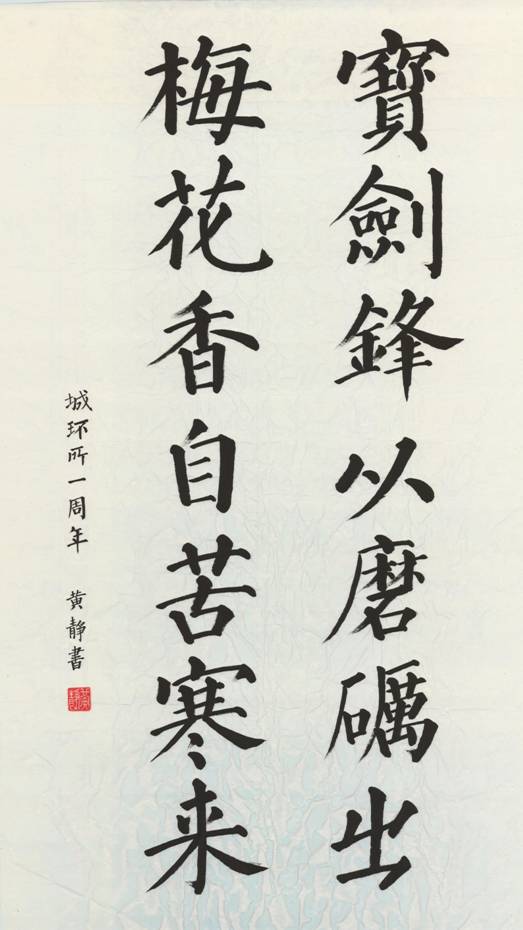 寶劍鋒以磨礪出
梅花香自苦寒来
城环所一周年 黄静書